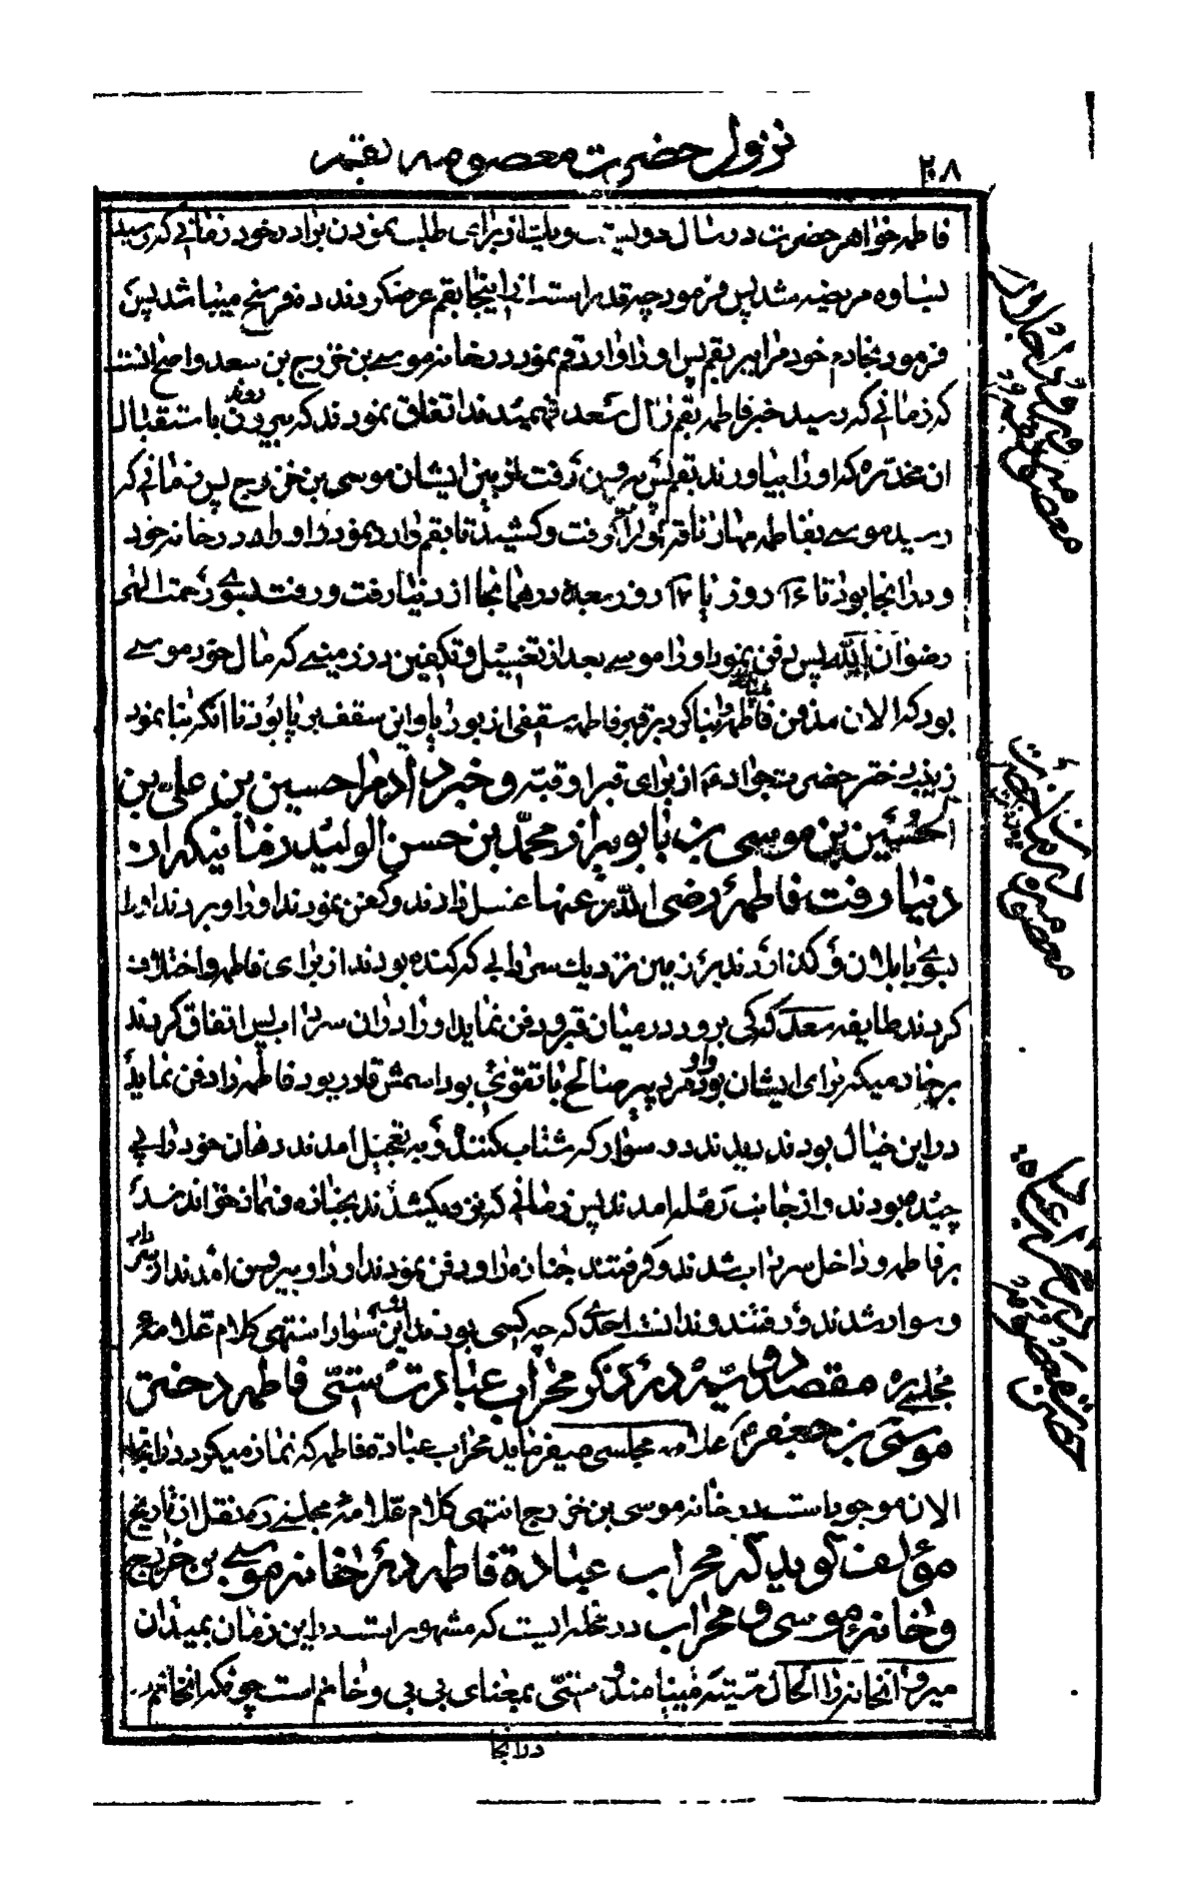 ۲۰۸
نزول حضرت معصومه بقم
فاطمه خواهر حضرت در سال دویست و یک از برای طلب نمودن برادر خود زمانی که رسید
بساوه مریضه شد پس فرمود چه قدر است از اینجا بقم عرض کردند ده فرسخ میباشد پس
فرمود بخادم خود مرا ببر بقم پس او را وارد قم نمود در خانه موسی بن خزرج بن سعد و اصح انست
که زمانی که رسید خبر فاطمه بقم ال سعد فهمیدند اتفاق نمودند که بیرون روند باستقبال
ان مخدره که او را بیاورند بقم پس بیرون رفت از بین ایشان موسی بن خزرج پس زمانی که
رسید موسی بفاطمه مهار ناقه او را گرفت و کشید تا بقم وارد نمود او را در خانه خود
و در انجا بود تا ۱۶ روز یا ۱۷ روز بعد در همانجا از دنیا رفت و رفت بسوی رحمت الهی
رضوان الله پس دفن نمود او را موسی بعد از تغسیل و تکفین در زمینی که مال خود موسی
بود که الان مدفن فاطمه میباشد و بنا کرد بر قبر فاطمه سقفی از بوریا و این سقف برپا بود تا انکه بنا نمود
زینب دختر حضرت جواد از برای قبر او قبه و خبر داد مرا حسین بن علی بن
الحسین بن موسی بن بابویه از محمد بن حسن الولید زمانیکه از
دنیا رفت فاطمه رضی الله عنها غسل دادند و کفن نمودند او را و بردند او را
بسوی بابلان و گذاردند بر زمین نزدیک سردابی که کنده بودند از برای فاطمه و اختلاف
کردند طایفه سعد که کی برود در میان قبر و دفن نماید او را در ان سرداب پس اتفاق کردند
بر خادمیکه برای ایشان بود و او مرد پیر صالح با تقوی بود اسمش قادر بود فاطمه را دفن نماید
در این خیال بودند دیدند دو سوار که شتاب کننده و به تعجیل امدند دهان خود را
بودند و از جانب رمله امدند پس زمانی که نزدیک شدند بجنازه و نماز خواندند
بر فاطمه و داخل سرداب شدند و گرفتند جنازه را و دفن نمودند او را و بیرون امدند از سرداب
و سوار شدند و رفتند و ندانست احدی که چه کسی بودند این سوارا انتهی کلام علامه
مجلسی ره مقصد دویم در ذکر محراب عبادت ستی فاطمه دختر
موسی بن جعفر علامه مجلسی میفرماید محراب عبادة فاطمه که نماز میکرد در انجا
الان موجود است در خانه موسی بن خزرج انتهی کلام علامه مجلسی ره نقل از تاریخ
مؤلف گوید که محراب عبادة فاطمه در خانه موسی بن خزرج
و خانه موسی و محراب در محله ایست که مشهور است در این زمان بمیدان
میر و انخانه را الحال ستیه مینامند و ستی بمعنای بی بی و خانم است چونکه انخانم
در انجا
معصومه
معصومه